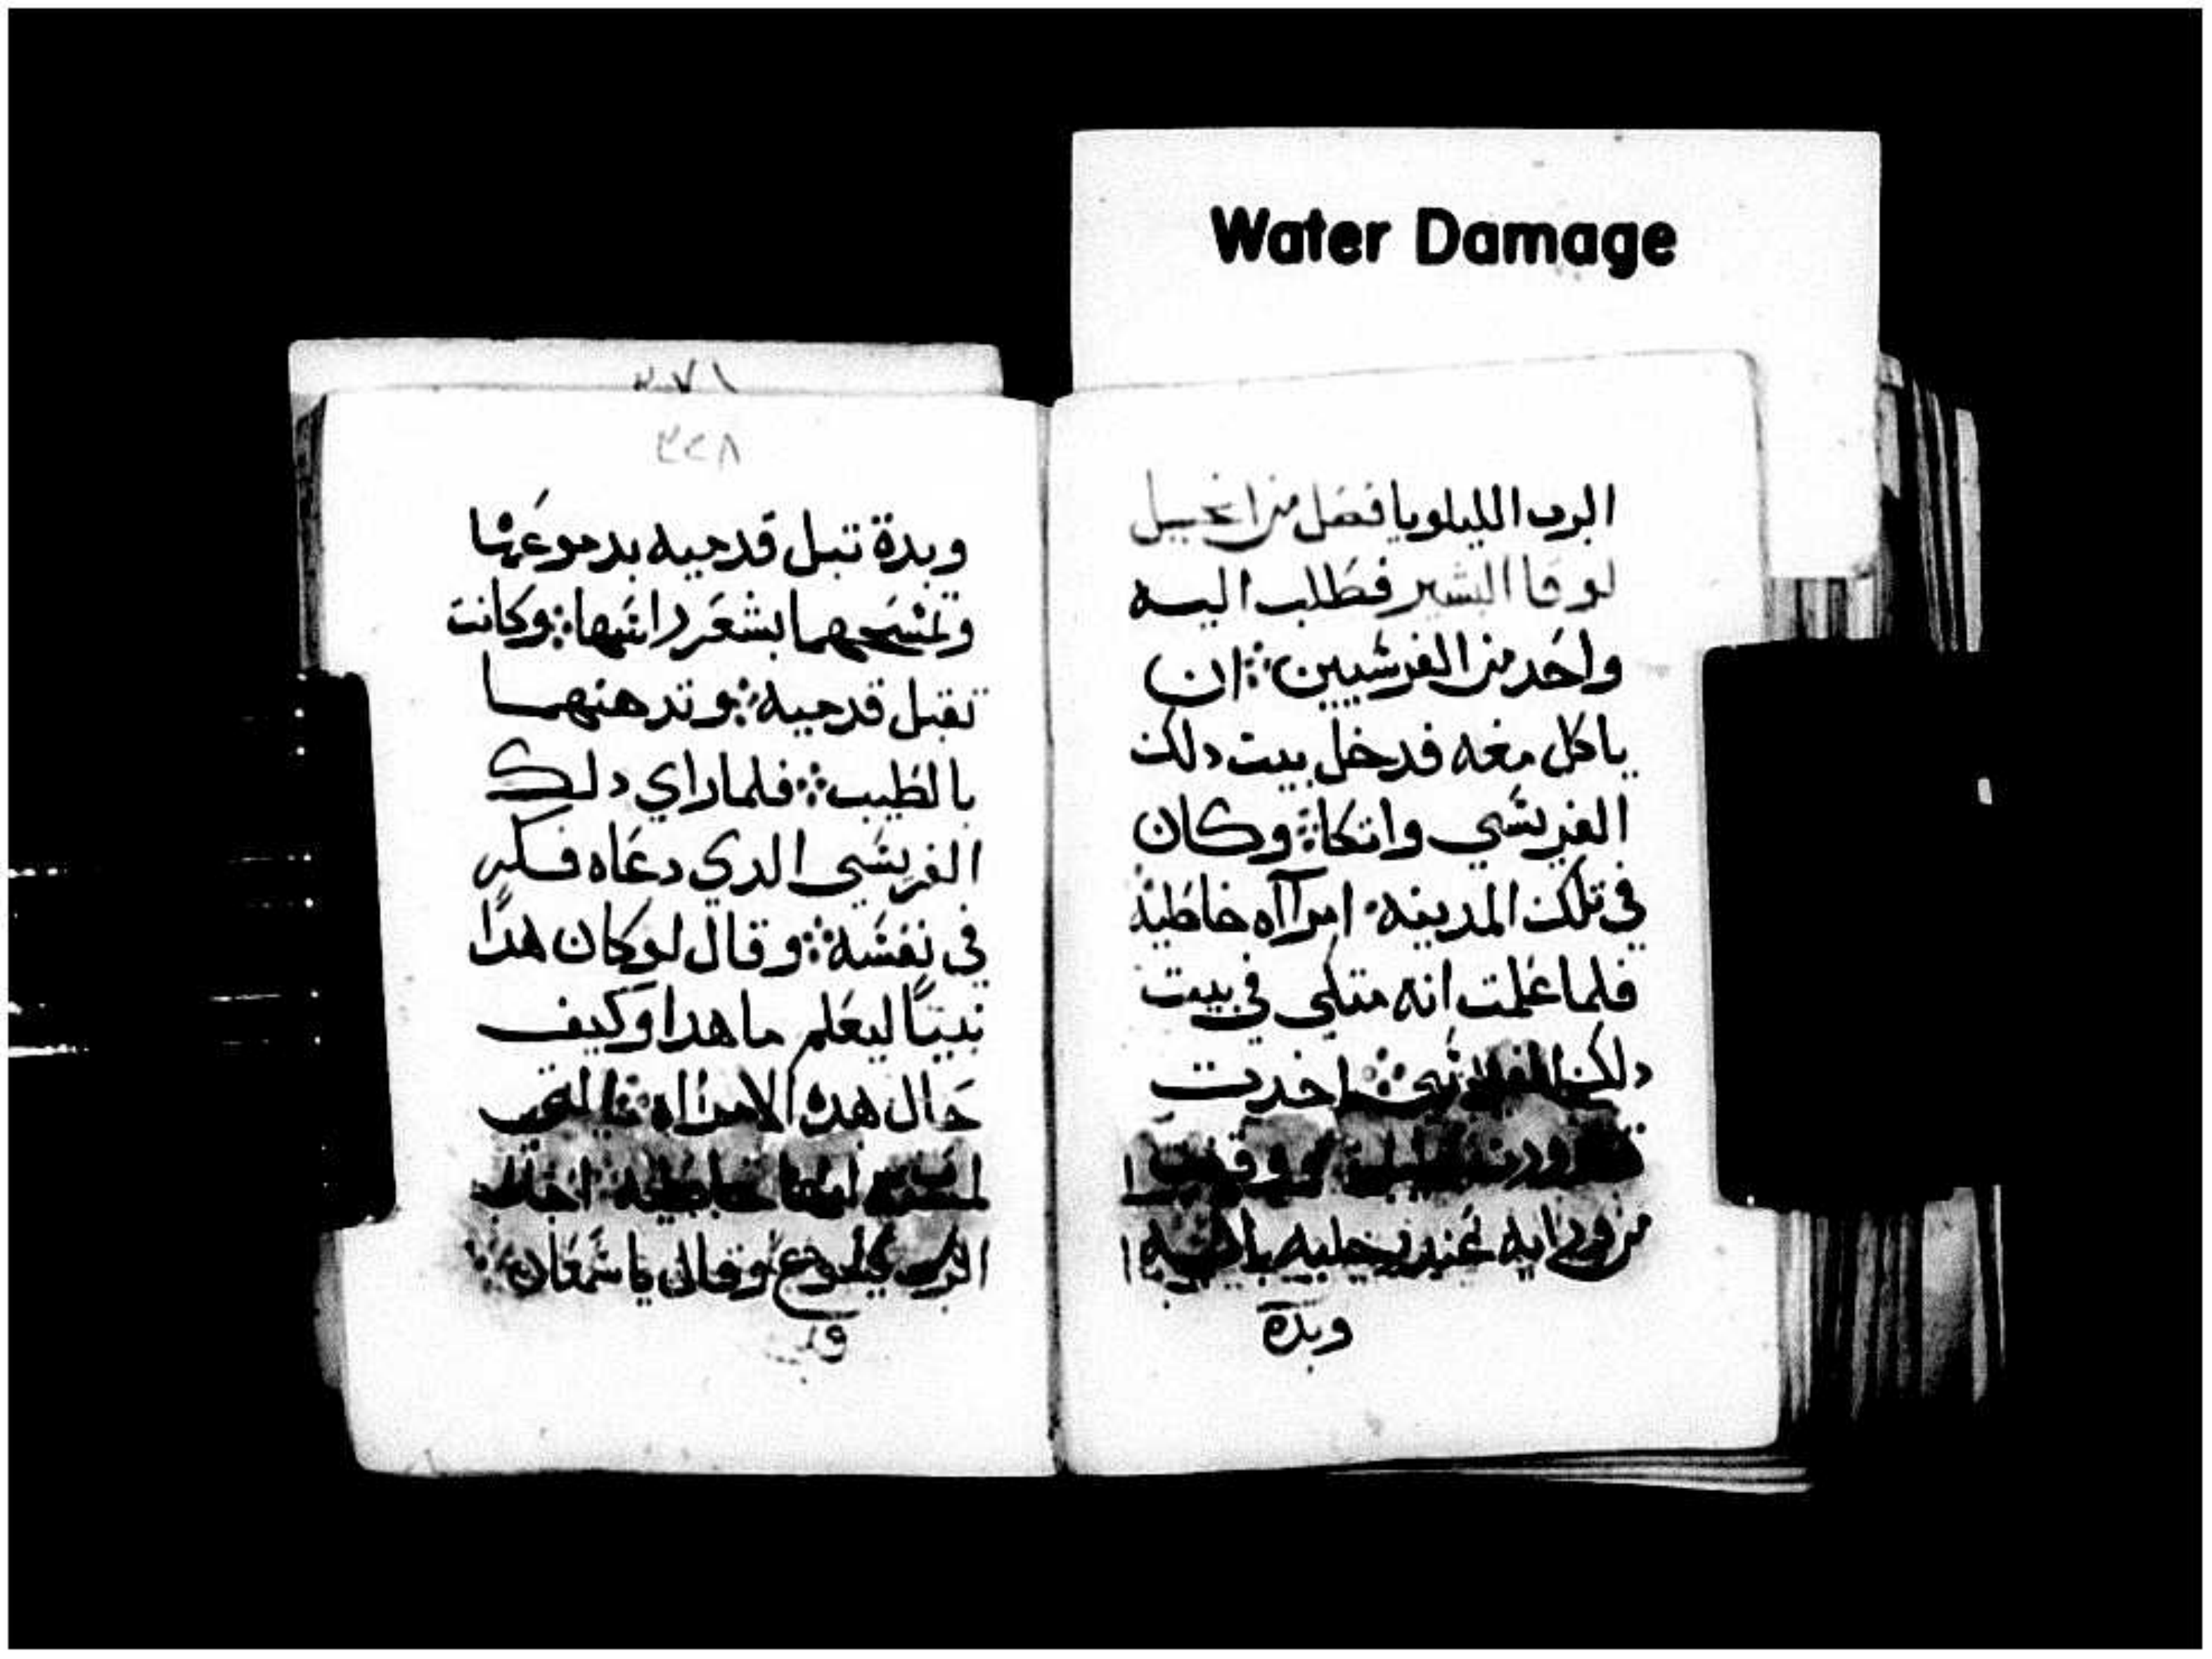 Water Damage
الرب الليلويا فصل من انجيل
لوقا البشير فطلب اليه
واحد من الفرشيين ان
ياكل معه فدخل بيت دلك
الفريسي واتكا وكان
في تلك المدينه امرااه خاطية
فلما علمت انه متكي في بيت
دلك اخدت
ووقفت
من وراىه عند رجليه باكيه
وبدة
٣٧١
٣٢٨
وبدة تبل قدميه بدموعها
وتمسحهما بشعر راسها وكانت
تقبل قدميه وتدهنهما
بالطيب فلما راي دلك
الفريسي الدي دعاه فكر
في نفسه وقال لو كان هدا
نبيًا ليعلم ما هدا وكيف
حال هده الامراه التي
لمسته انها خاطيه اجاب
الرب يسوع وقال يا سمعان